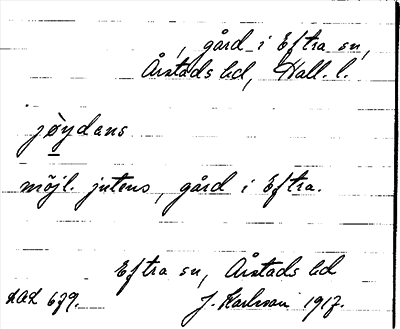 , gård i Eftra sn,
Årstads hd, Hall. l.
jöydans
möjl. jutens, gård i Eftra.
Eftra sn, Årstads hd
AAL 679. J. Karlsson 1917.